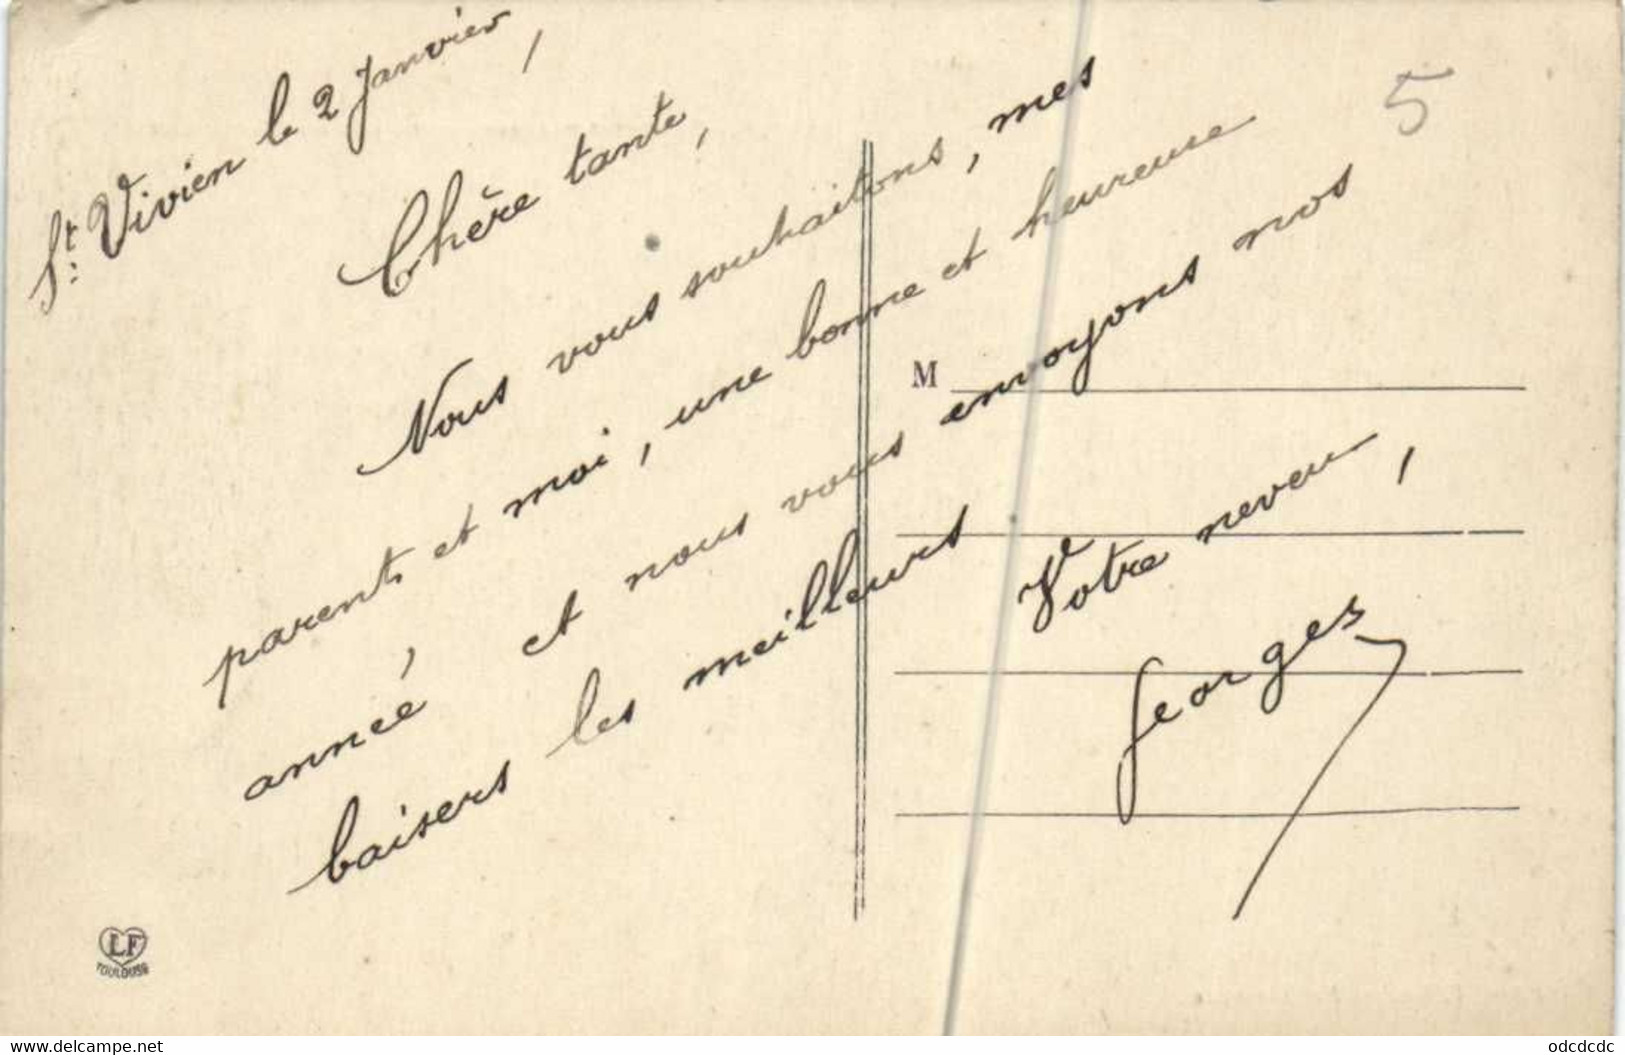 St. Vivien le 2 Janvier,
Chère tante,
Nous vous souhaitons, mes
parents et moi, une bonne et heureuse
année, et nous vous envoyons nos
baisers les meilleurs
Votre neveu,
Georges
5
M
LF
TOULOUSE
www.delcampe.net
odcdcdc